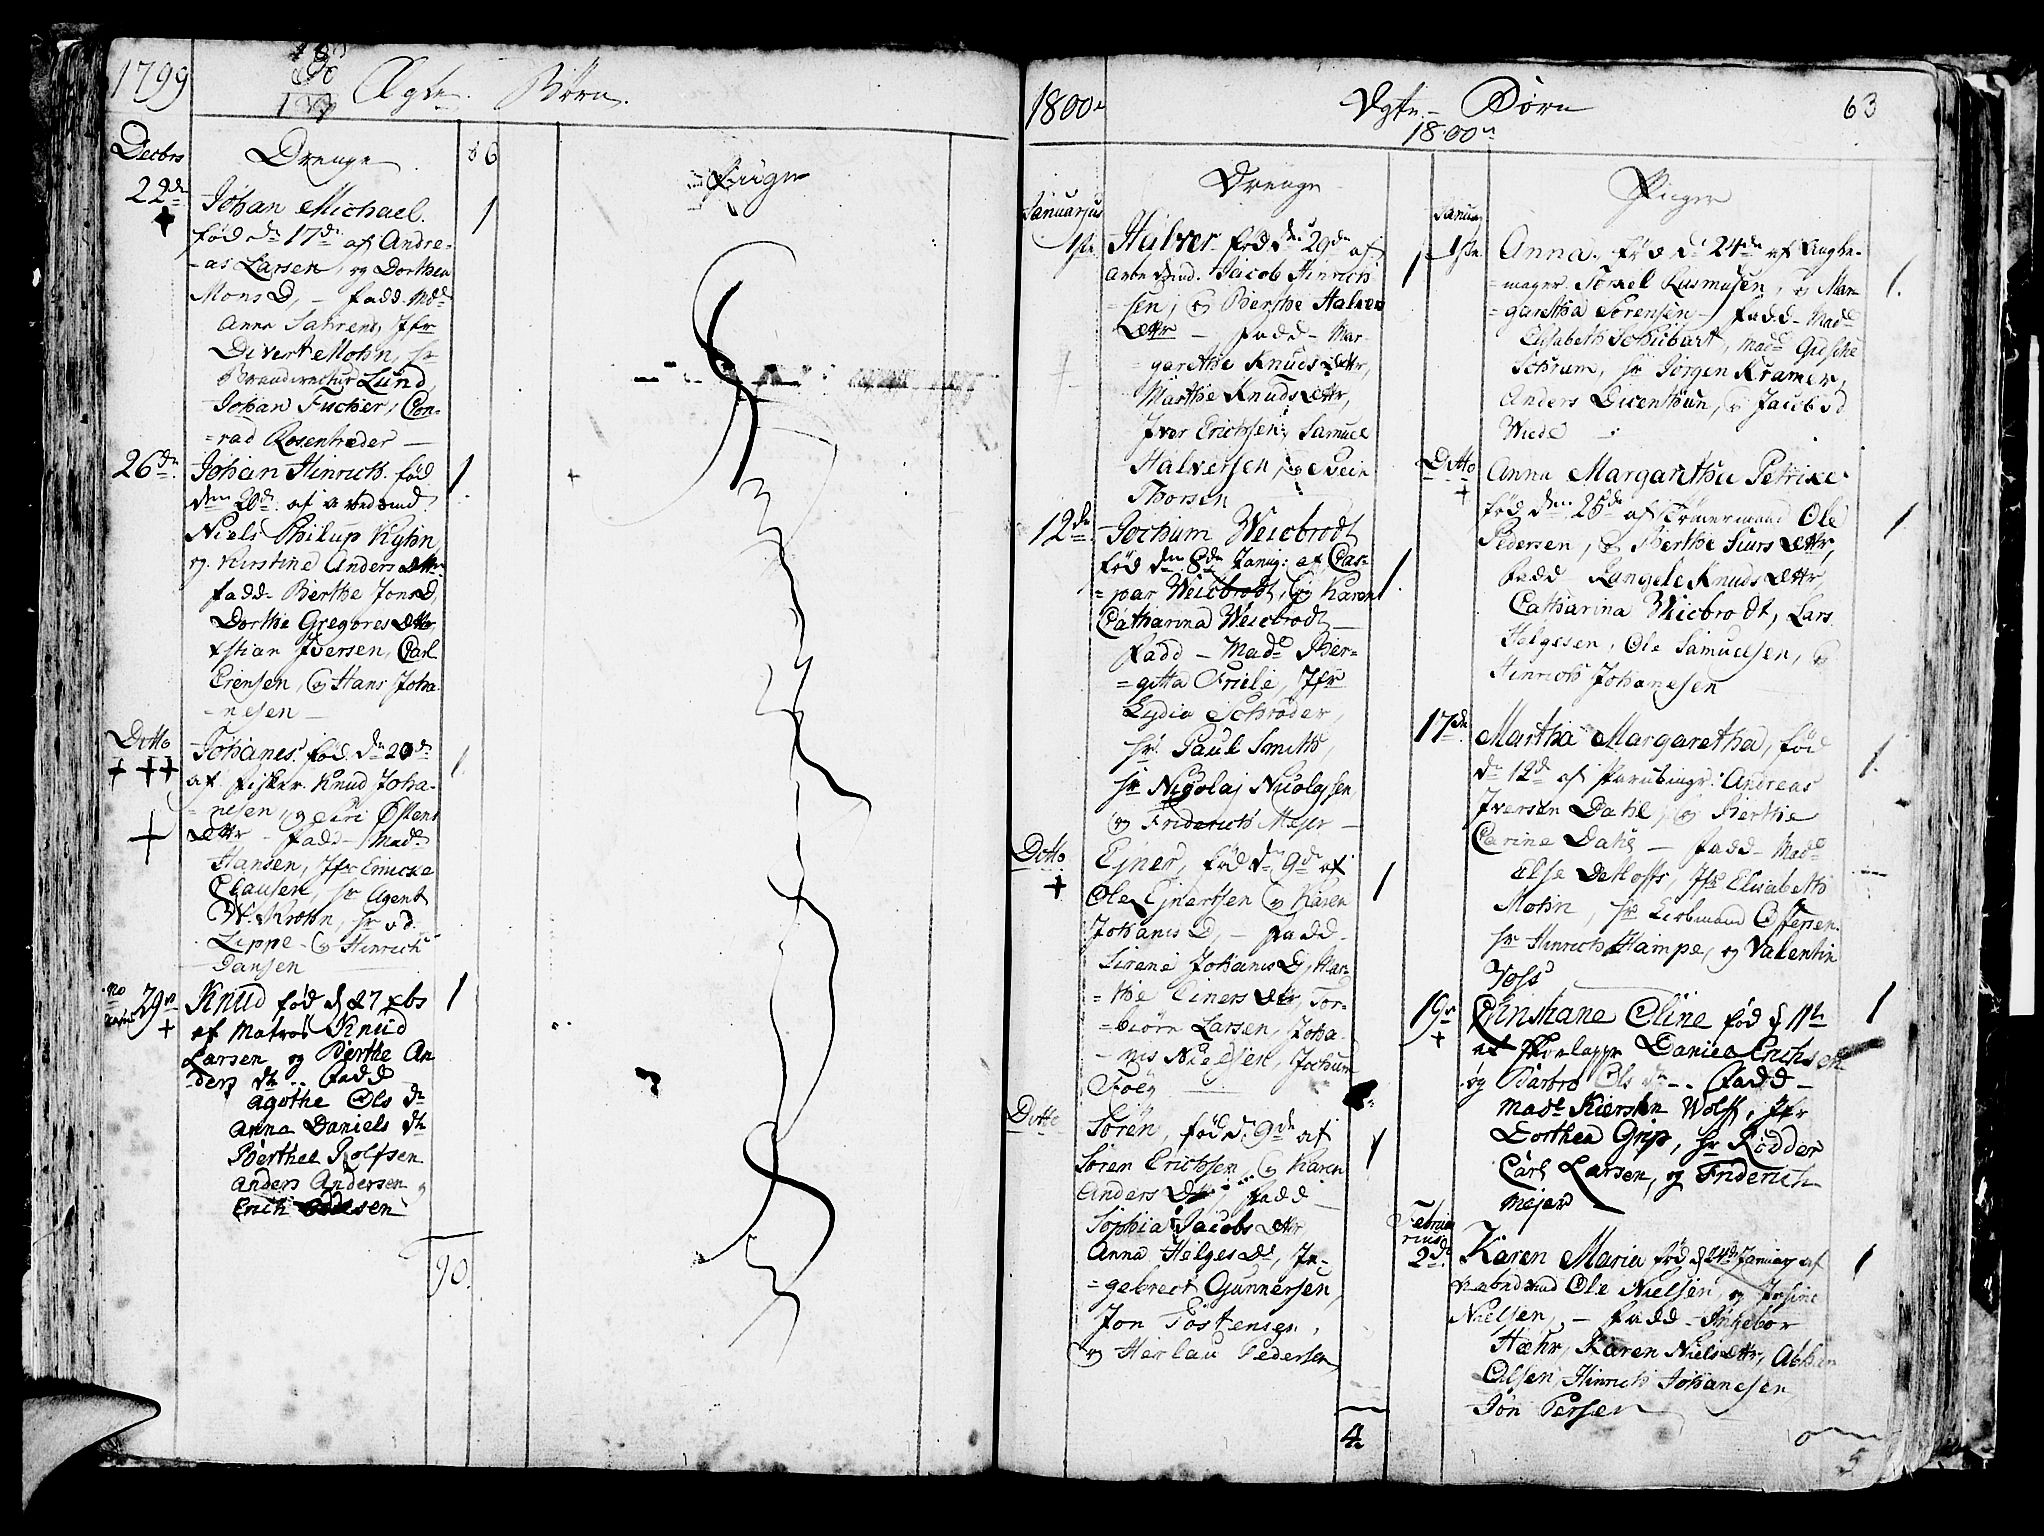 1799
Ægte Børn.
Decbrs
Drenge
86
Piger
22de
Johan Michael.
1
fød dn 17de af Andre-
-as Larsen, og Dorthea
Mons D, - fadd. Mdd
Anna Sahrens, Jfr
Divert Mohn, hr
Branddirecteur Lund,
Johan Fucher, Con-
=rad Rosentræder —
26de
Johan Hinrich. fød
1
den 20de af arbdsmd.
Niels Philup Kyhn
og Kirstine Anders Dttr
fadd- Berthe Jons D,
Dorthe Gregores Dttr
Xstian Iversen, Carl
Erensen, og Hans Joha-
-nesen —
Ditto
Johanes. fød dn 20de
1.
af fisker. Knud Joha-
=nesen, og Siri Østens
Dttr - fadd - Madd
Hansen, Jfr Emicke
Clausen, hr Agent
W. Krohn, hr v d.
Lippe - og Hinrich
Dansen
no
29de
Knud fød d 27 xbs
1
af Matros Knud
Larsen og Berthe An
ders dtr .. fadd
Agothe Ols dr
Anna Daniels dtr
Berthe Rolfsen
Anders Andersen og
Erich Olsen
90.
1800.
Ægte - Børn
63
1800.
Drenge
Piger
Januarjus
1ste
Halver fød dn 29de af
1
arbeidsmd. Jacob Hinrich-
=sen, og Berthe Halvers
Dttr — fadd - Mar
=garethe Knuds Dttr,
Marthe Knuds Dttr,
Iver Erichsen, Samuel
Halversen, og Svein
Thorsen
12de
Jochum Weicbrodt
fød dn 8de Janug: af Cas-
1
=par Weicbrodt, og Karen
Catharina Weicbrodt —
fadd - Madd Ber=
=gitta Friele, Jfr
Lydia Schrøder,
hr. Paul Smith,
hr Nicolaj Nicolajsen,
og Friderich Mejer —
Ditto
Ejner, fød dn 9de af
1
Ole Ejnertsen og Karen
Johanis D, - fadd-
Sirene Johanis D, Mar-
=the Einers Dttr, Tor-
=biørn Larsen, Joha-
-nis Nielsen, Jochum
Foeg —
Ditto
Søren, fød d. 9de af
1
Søren Erichsen, og Karen
Anders Dtr, fadd —
Sophia Jacobs Dttr
Anna Helges Dr, In=
=gebrect Gunnersen,
Jon Tostensen,
og Herlau Pedersen,
4
Januarj
1ste
Anna, fød d. 24de af
1.
=mager. Torkel Rasmusen, og Mar-
=garetha Sørensen - fadd - Madd
Elisabeth Schubart, Madd Gesche
Schrum, hr Jørgen Kramer,
Anders, og Jacob v d
Wiede
Ditto
Anna Margarethe Petrixe
fød den 25de af Tømermand Ole
1
Pedersen, og Berthe Siurs Dttr,
fadd Langele Knuds Dttr,
Catharina Wiebrodt, Lars
Helgesen, Ole Samuelsen, og
Hinrich Johanesen
17de
Martha Margaretha, fød
1.
dn 12de af Andreas
Iversen Dahl, og Berthe
Carine Dahl — fadd- Madd
Else Dethoffs, Jfr Elisabeth
Mohn, hr
hr Hinrich Hampe, og Valentin
Voss
19de
Christiane Oline fød d 11te
1
af Daniel Erichsen
og Barbro Ols dr -. fadd —
Madd Kiersten Wolff, Jfr
Dorthea Grip, hr Rødder
Carl Larsen, og Friderich
Mejer
Februa
rius
2de
Karen Maria fød d 24de Januar af
1
Ole Nielsen, og
Nielsen, - fadd - Ingebor
Hæhr, Karen Niels Dttr,
Olsen, Hinrich Johanesen
Jon Persen
5